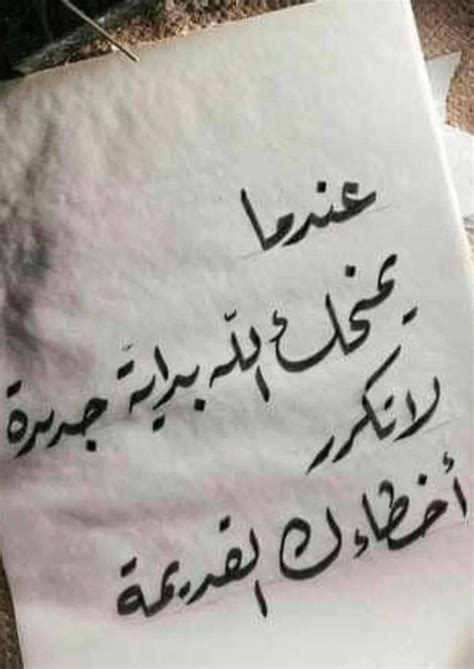 عندما
يمنحك الله بداية جديدة
لا تكرر
أخطاءك القديمة